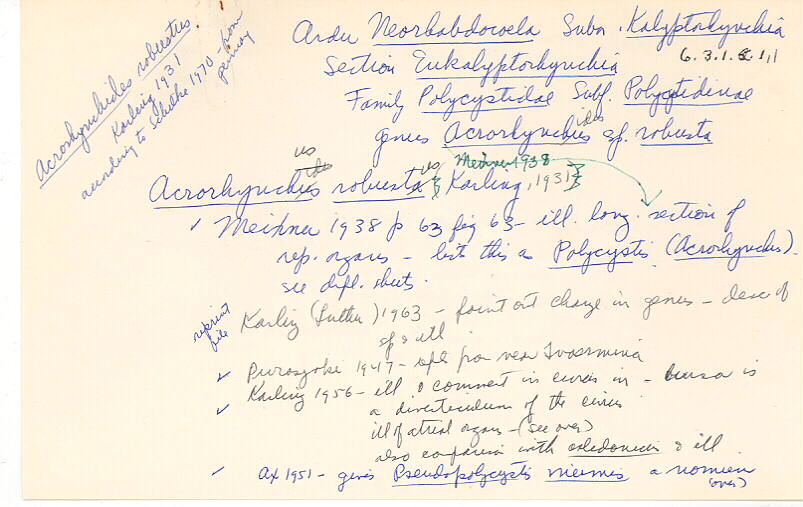 Acrorhynchides robustus
Karling 1931
according to Schilke 1970 - from
Germany
Order Neorhabdocoela Subor. Kalyptorhynchia
6.3.1.6.1,1
Section Eukalyptorhynchia
Family Polycystidae Subf. Polycystidinae
ides
genus Acrorhynchus sp. robusta
Meixner 1938
us
ides
us
Acrorhynchus robusta (Karling, 1931)
✓ Meixner 1938 p 63 fig 63 - ill. long. section of
rep. organs - lists this as Polycystis (Acrorhynchus).
see difl. sheets.
reprint
file
Karling (Luther) 1963 - point out change in genus - desc of
sp & ill
✓ 1947 - from near Tvärminne
✓ Karling 1956 - ill & comment in cirrus in - bursa is
✓ a diverticulum of the cirrus
ill of atrial organs - (see over)
also comparison with caledonicus & ill.
✓ Ax 1951 - gives Pseudopolycystis inermis a nomen
(over)